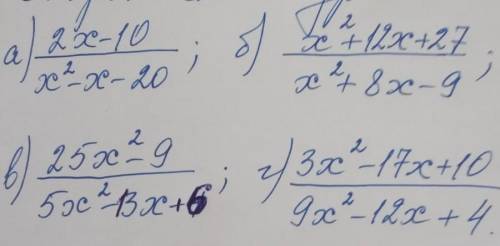 а) (2x-10)/(x²-x-20); б) (x²+12x+27)/(x²+8x-9);
в) (25x²-9)/(5x²-13x+6); г) (3x²-17x+10)/(9x²-12x+4).